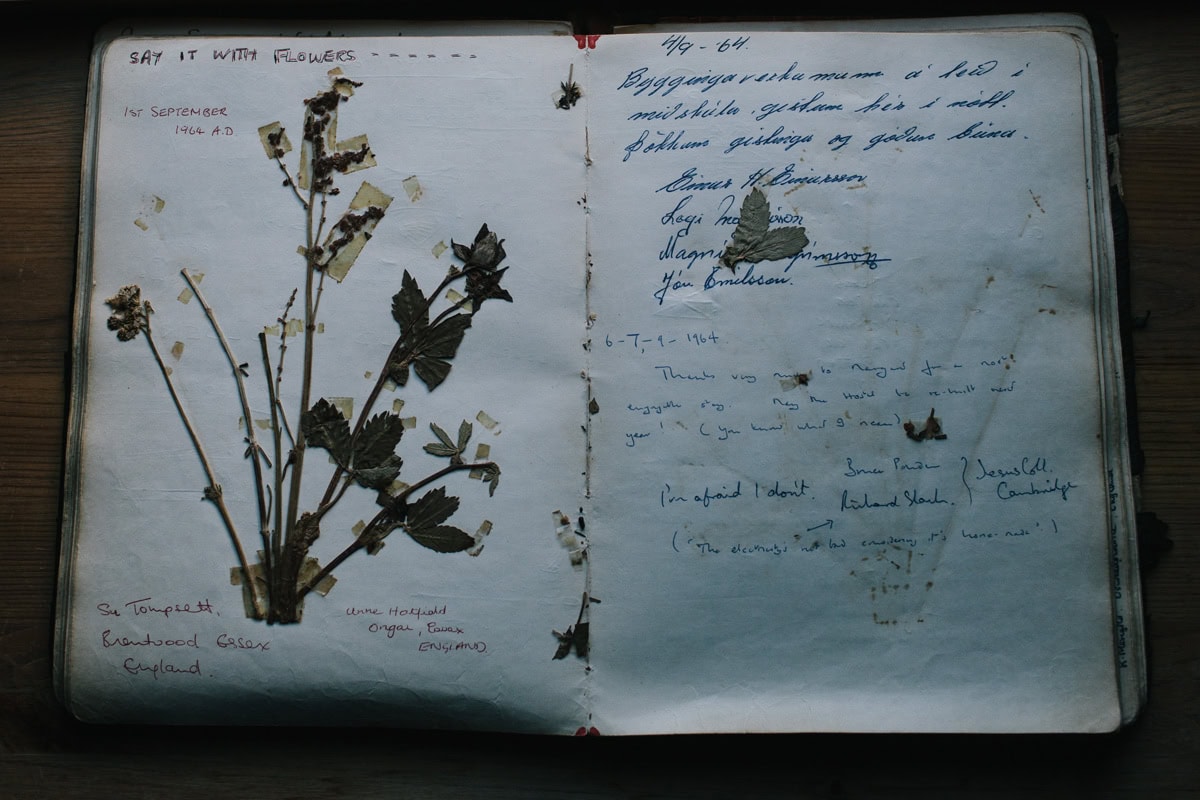 SAY IT WITH FLOWERS - - - - - -
1ST SEPTEMBER
1964 A.D.
Sue Tompsett,
Brentwood Essex
England.
Anne Hatfield
Ongar, Essex
ENGLAND.
4/9 - '64.
Byggingaverkamenn á leið í
miðskála, gistum hér í nótt.
Þökkum gistingu og góðan
Einar H. Einarsson
Logi
Jón Emilsson.
6-7,-9-1964.
Thanks very much to for a most
stay. May the be re-built next
year! (You know what I mean)
Bruce
I'm afraid I don't. Richard
Jesus Coll.
Cambridge
("The electricity's not bad considering it's home-made")